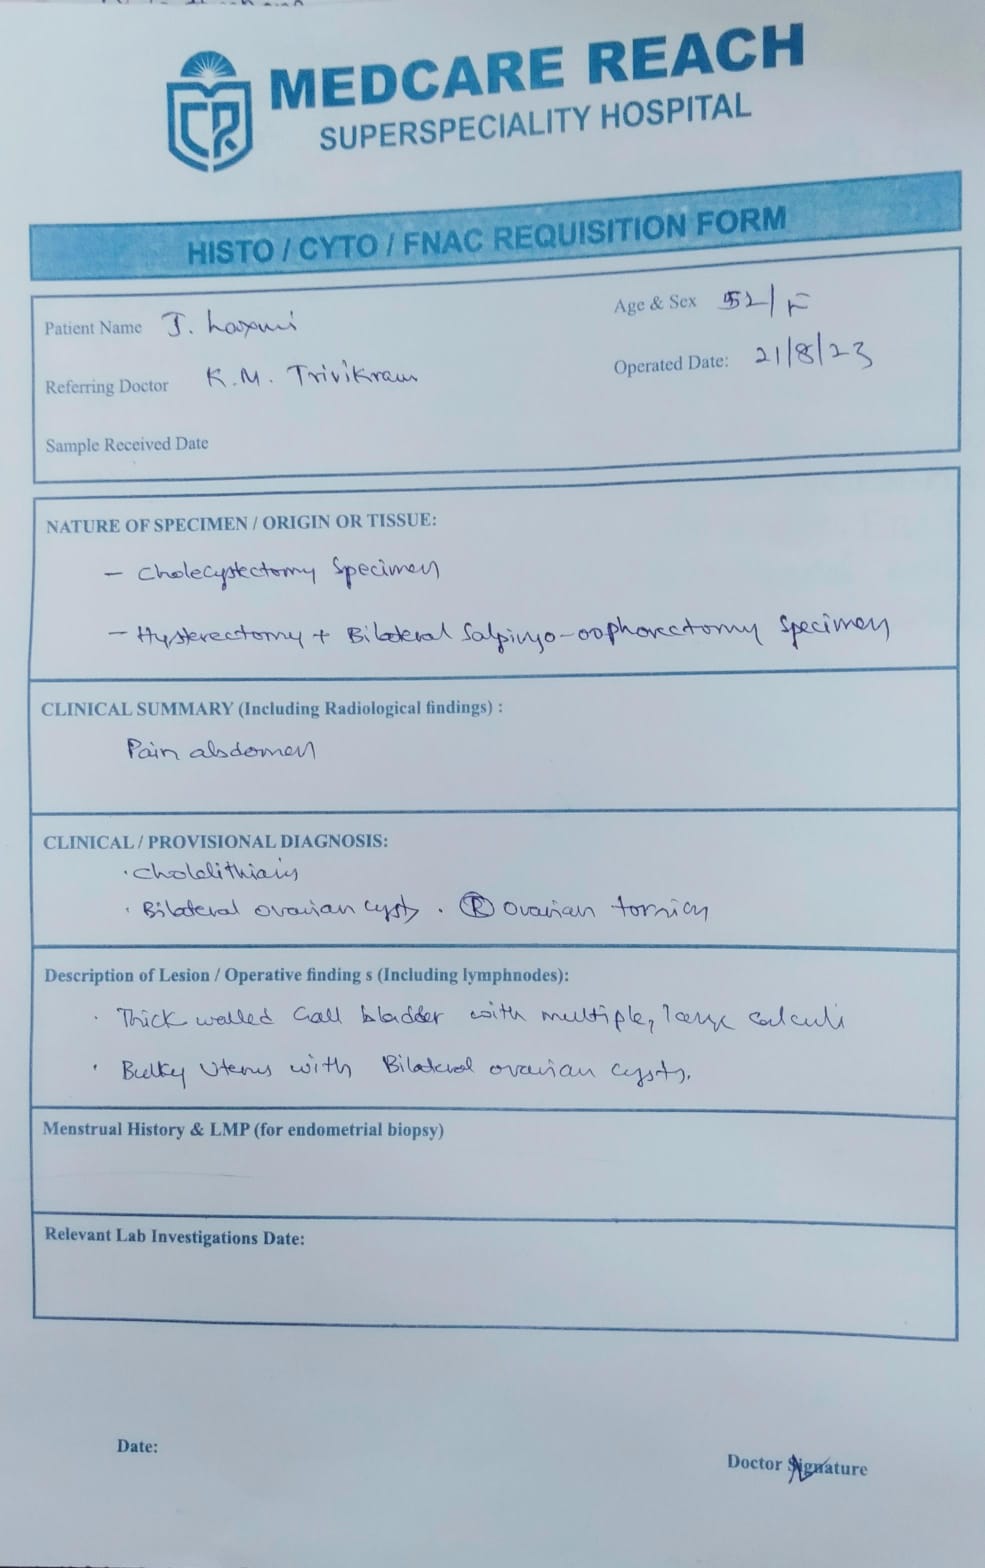 MEDCARE REACH
SUPERSPECIALITY HOSPITAL
HISTO / CYTO / FNAC REQUISITION FORM
Patient Name J. Laxmi
Age & Sex 52/F
Referring Doctor K.M. Trivikram
Operated Date: 21/8/23
Sample Received Date
NATURE OF SPECIMEN / ORIGIN OR TISSUE:
- Cholecystectomy Specimen
- Hysterectomy + Bilateral Salpingo-oophorectomy Specimen
CLINICAL SUMMARY (Including Radiological findings) :
Pain abdomen
CLINICAL / PROVISIONAL DIAGNOSIS:
· Cholelithiasis
· Bilateral ovarian cysts. Ⓡ ovarian torsion
Description of Lesion / Operative finding s (Including lymphnodes):
· Thick walled Gall bladder with multiple, large calculi
· Bulky Uterus with Bilateral ovarian cysts.
Menstrual History & LMP (for endometrial biopsy)
Relevant Lab Investigations Date:
Date:
Doctor Signature